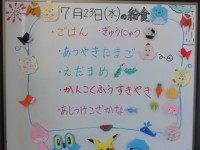 7月23日(水)の給食
・ごはん ・ぎゅうにゅう
・あつやきたまご
・えだまめ
・かんこくふうすきやき
・あじつけこざかな